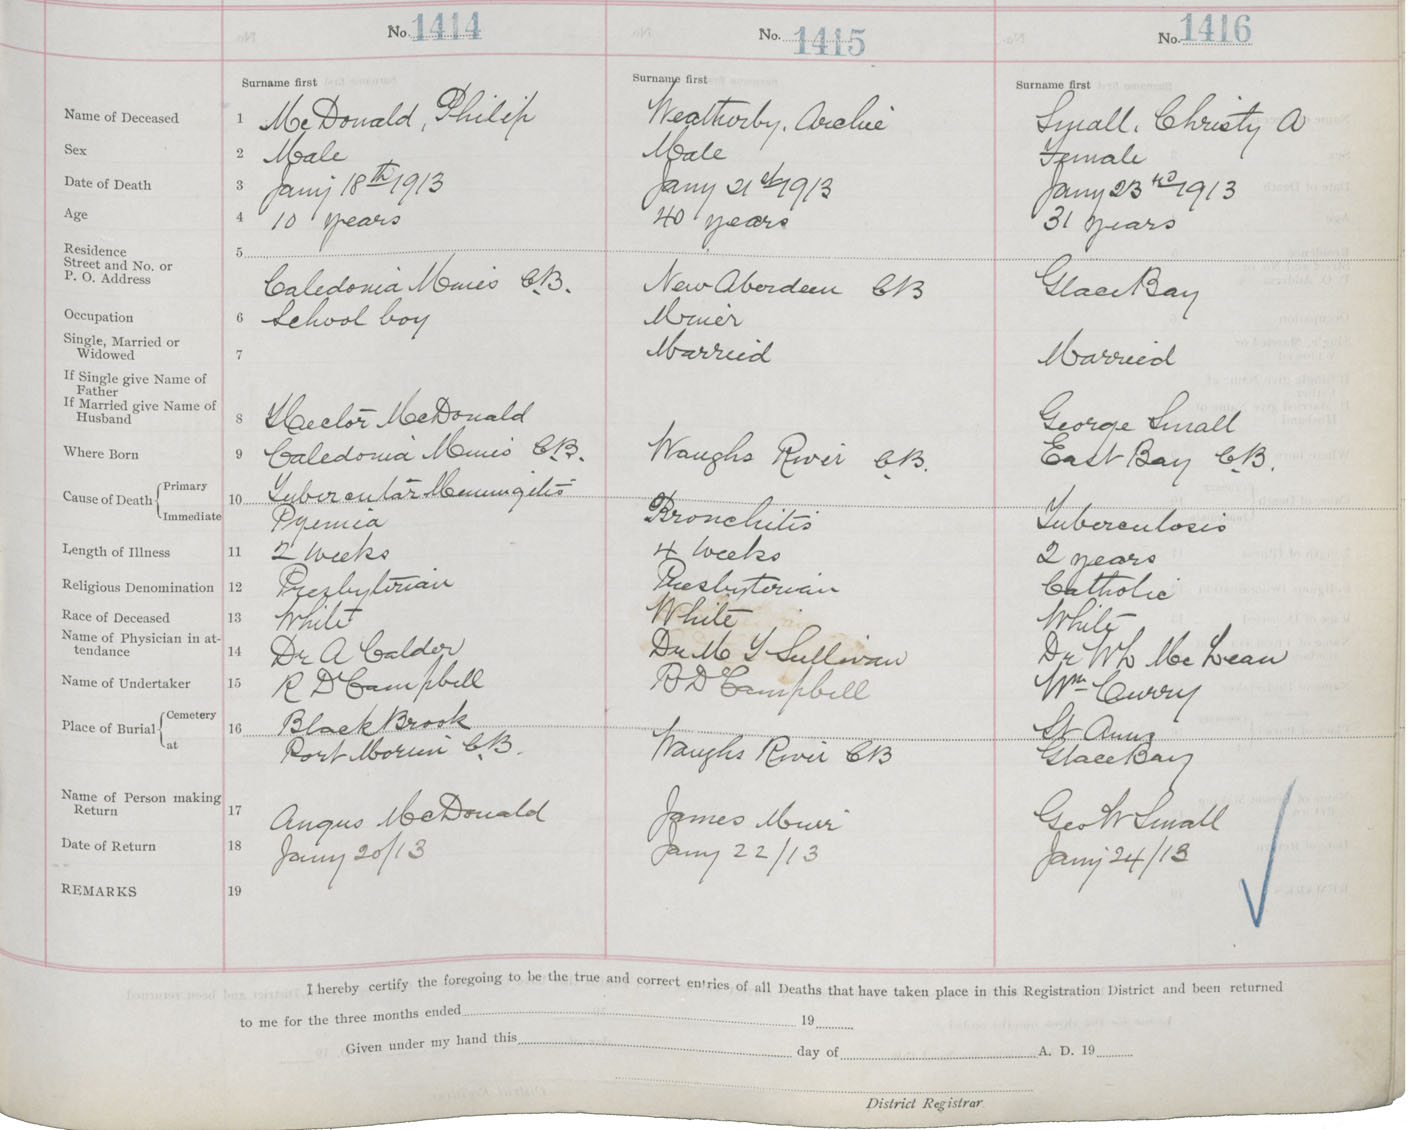 No. 1414 No. 1415 No. 1416
Surname first Surname first Surname first
Name of Deceased 1 McDonald, Philip Weatherby, Archie Small, Christy A
Sex 2 Male Male Female
Date of Death 3 Jany 18th 1913 Jany 21st 1913 Jany 23rd 1913
Age 4 10 years 40 years 31 years
Residence
Street and No. or 5
P. O. Address Caledonia Mines C.B. New Aberdeen CB Glace Bay
Occupation 6 School boy Miner
Single, Married or
Widowed 7 Married Married
If Single give Name of
Father
If Married give Name of
Husband 8 Hector McDonald George Small
Where Born 9 Caledonia Mines C.B. Waughs River C.B. East Bay C.B.
Primary
Cause of Death 10 Tubercular Meningitis
Immediate Pyemia Bronchitis Tuberculosis
Length of Illness 11 2 weeks 4 weeks 2 years
Religious Denomination 12 Presbyterian Presbyterian Catholic
Race of Deceased 13 White White White
Name of Physician in at-
tendance 14 Dr A Calder Dr M T Sullivan Dr Wh McLean
Name of Undertaker 15 R D Campbell R D Campbell Wm Curry
Cemetery
Place of Burial 16 Black Brook St Anns
at Port Morien C.B. Waughs River CB Glace Bay
Name of Person making
Return 17 Angus McDonald James Muir Geo W Small
Date of Return 18 Jany 20/13 Jany 22/13 Jany 24/13
REMARKS 19
I hereby certify the foregoing to be the true and correct entries of all Deaths that have taken place in this Registration District and been returned
to me for the three months ended 19
Given under my hand this day of A. D. 19
District Registrar